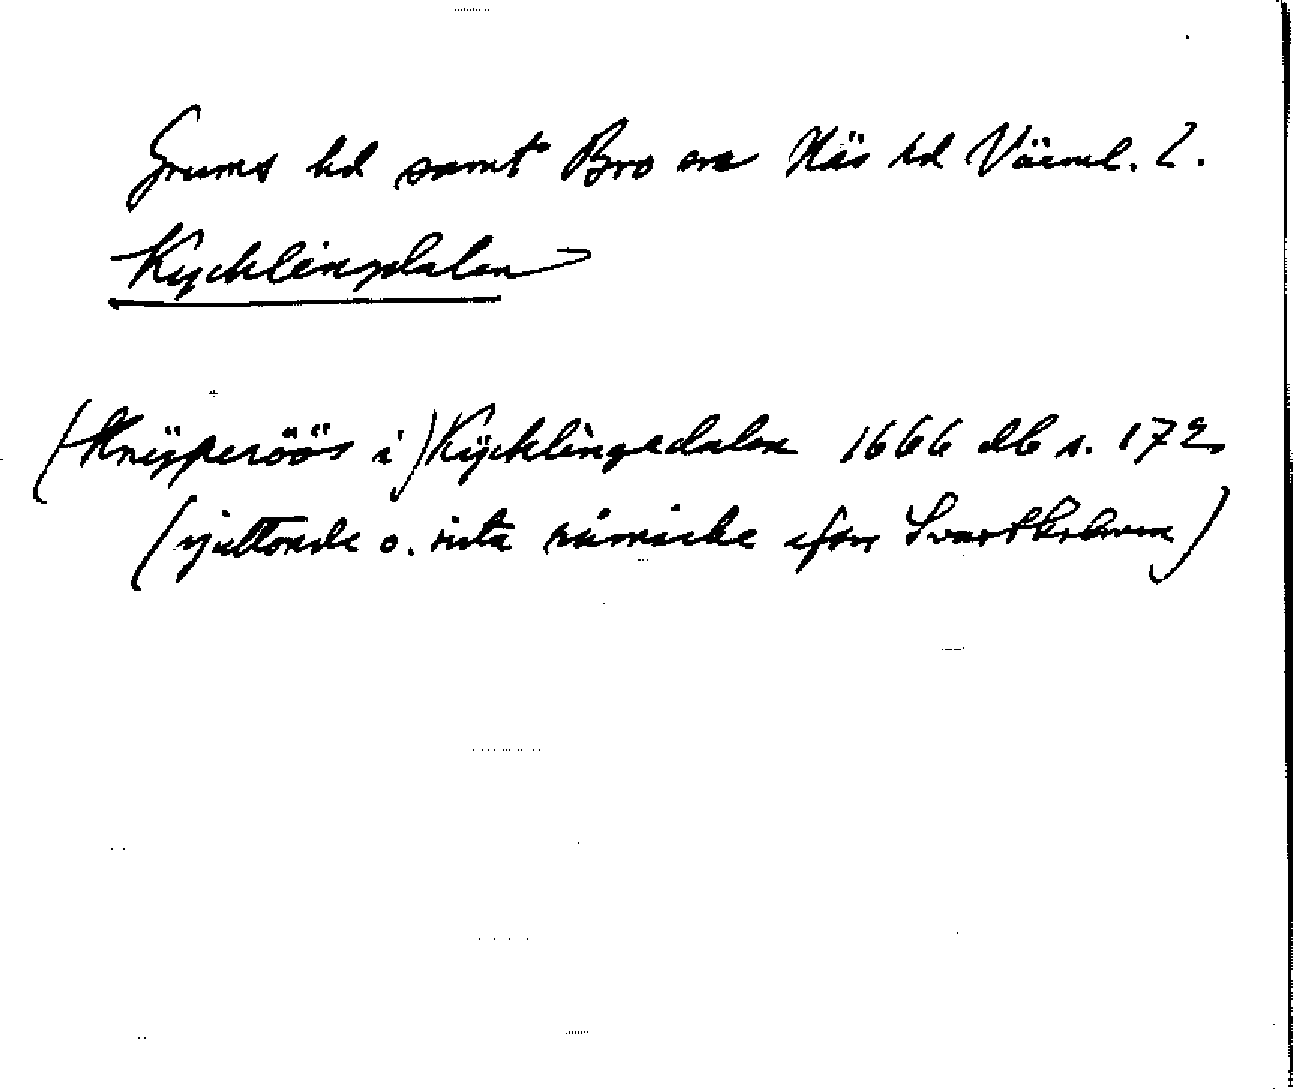 Grums hd samt Bro sn Näs hd Värml. l.
Kycklingdalen
(Knÿperöös i) Kÿcklingedalen 1666 db s. 172
(sjuttonde o. sista råmärke efter Svartkärren)